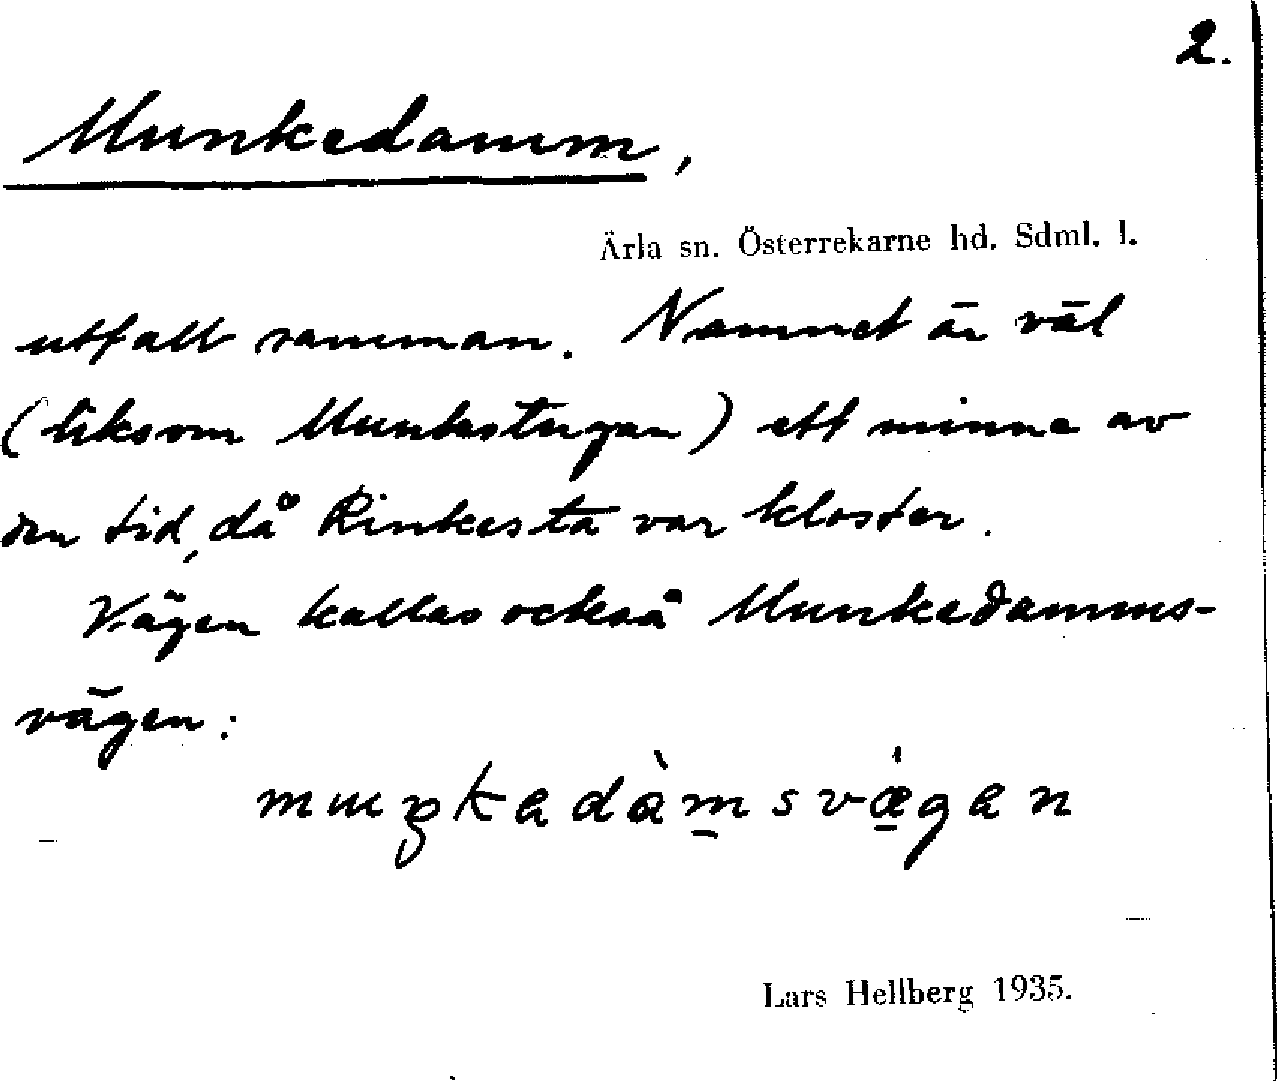 2.
Munkedamm,
Ärla sn. Österrekarne hd. Sdml. l.
utfallt samman. Namnet är väl
(liksom Munkestugan) ett minne av
den tid, då Rinkesta var kloster.
Vägen kallas också Munkedamms-
vägen:
Lars Hellberg 1935.